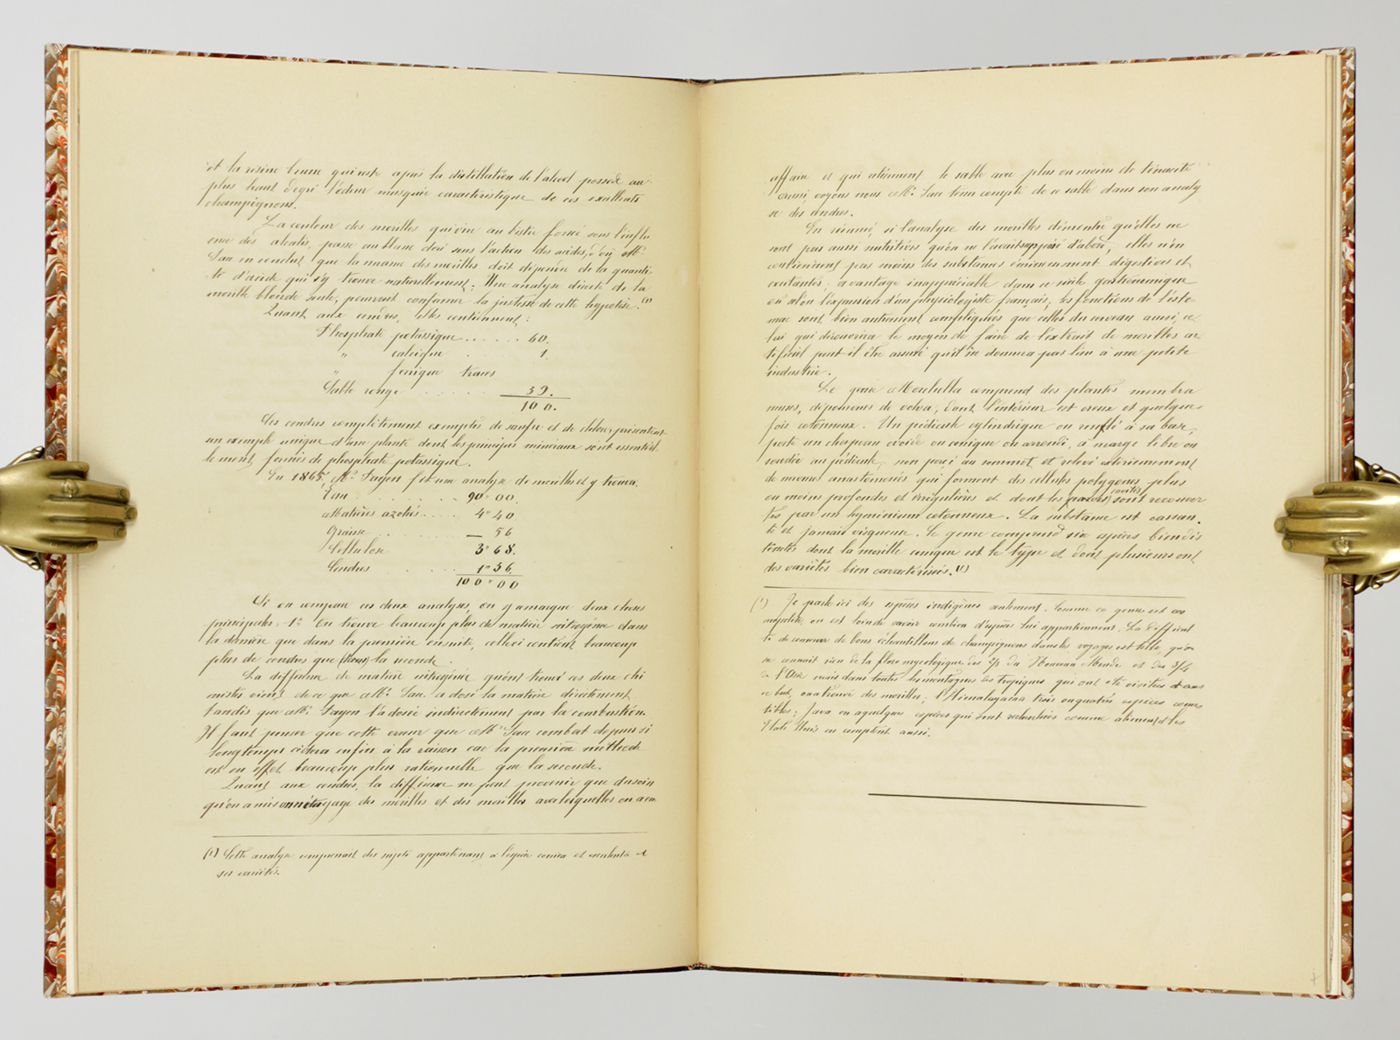 et la résine brune qui reste après la distillation de l'alcool possède au
plus haut degré l'odeur musquée caractéristique de ces excellents
champignons.
La couleur des morilles qui vire au bistre foncé sous l'influ
ence des alcalis, passe au blanc doré sous l'action des acides, d'où Mr.
Sace en conclut que la nuance des morilles doit dépendre de la quanti
té d'acide qui s'y trouve naturellement. Une analyse directe de la
morille blonde seule, pourrait confirmer la justesse de cette hypothèse. (1)
Quant aux cendres, elles contiennent :
Phosphate potassique ...... 60.
" calcique . . 1.
" ferrique traces
Sable rouge ....... 39.
100.
Ces cendres complètement exemptes de soufre et de chlore, présentent
un exemple unique d'une plante dont les principes minéraux sont essentiel
lement formés de phosphate potassique.
En 1865, Mr. Payen fit une analyse de morilles et y trouva:
Eau ........ 90"00.
Matières azotés .... 4"40
Graisse ...... — 56
Cellulose 3"68.
Cendres ...... 1"36
100"00
Si on compare ces deux analyses, on y remarque deux choses
principales: 1° On trouve beaucoup plus de matière nitrogène dans
la dernière que dans la première ensuite, celle-ci contient beaucoup
plus de cendres que la seconde.
La différence de matière nitrogénée qu'ont trouvé ces deux chi
mistes vient de ce que Mr. Sace a dosé la matière directement
tandis que Mr. Payen l'a dosée indirectement par la combustion.
Il faut penser que cette erreur que Mr. Sace combat depuis si
longtemps cédera enfin à la raison car la première méthode
est en effet beaucoup plus rationnelle que la seconde.
Quant aux cendres, la différence ne peut provenir que du soin
qu'on a mis au nétoyage des morilles et des morilles avec lesquelles on a eu
(1) Cette analyse comprenait des sujets appartenant à l'espèce conica et esculenta et
ses variétés.
affaire et qui retiennent le sable avec plus ou moins de ténacité
aussi voyons nous Mr. Sace tenir compte de ce sable dans son analy
se des cendres.
En résumé, si l'analyse des morilles démontre qu'elles ne
sont pas aussi nutritives qu'on ne l'avait supposé d'abord, elles n'en
contiennent pas moins des substances éminemment digestives et
excitantes: avantage inappréciable dans ce siècle gastronomique
où selon l'expression d'un physiologiste français, les fonctions de l'esto
mac sont bien autrement compliquées que celles du cerveau aussi, ce
lui qui découvrira le moyen de faire de l'extrait de morilles ar
tificiel peut-il être assuré qu'il ne donnera pas lieu à une petite
industrie.
Le genre Morchella comprend des plantes membra
neuses, dépourvues de volva, dont l'intérieur est creux et quelque-
fois cotonneux. Un pédicule cylindrique ou renflé à sa base,
porte un chapeau ovoïde ou conique ou arrondi, à marge libre ou
soudée au pédicule, non percé au sommet, et relevé extérieurement
de nervures anastomosées qui forment des cellules polygones plus
ou moins profondes et irrégulières et dont les cavités sont recouver
tes par un hyménium cotonneux. La substance est cassan.
te et jamais visqueuse. Le genre comprend six espèces bien dis
tinctes dont la morille conique est le type et dont plusieurs ont
des variétés bien caractérisées. (1)
(1) Je parle ici des espèces indigènes seulement. Comme ce genre est cos
mopolite, on est loin de savoir combien d'espèces lui appartiennent. La difficul
té de conserver de bons échantillons de champignons dans les voyages est telle, qu'on
ne connait rien de la flore mycologique des 4/5 du Nouveau Monde et des 3/4
de l'Asie mais dans toutes les montagnes des tropiques qui ont été visitées dans
ce but, on a trouvé des morilles. L'Himalaya a trois ou quatre espèces comes
tibles; Java en a quelques espèces qui sont recherchées comme aliments, les
Etats Unis en comptent aussi.